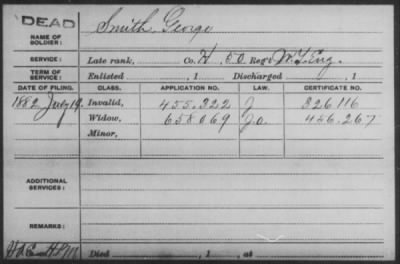 DEAD
NAME OF SOLDIER: Smith, George
SERVICE: Late rank, Co. H, 50 Reg't N.Y. Eng.
TERM OF SERVICE: Enlisted , 1 Discharged , 1
DATE OF FILING. CLASS. APPLICATION NO. LAW. CERTIFICATE NO.
1882 July 19. Invalid, 455.322 J 326116
Widow, 658069 J.a. 456.267
Minor,
ADDITIONAL SERVICES:
REMARKS:
Died , 1 , at